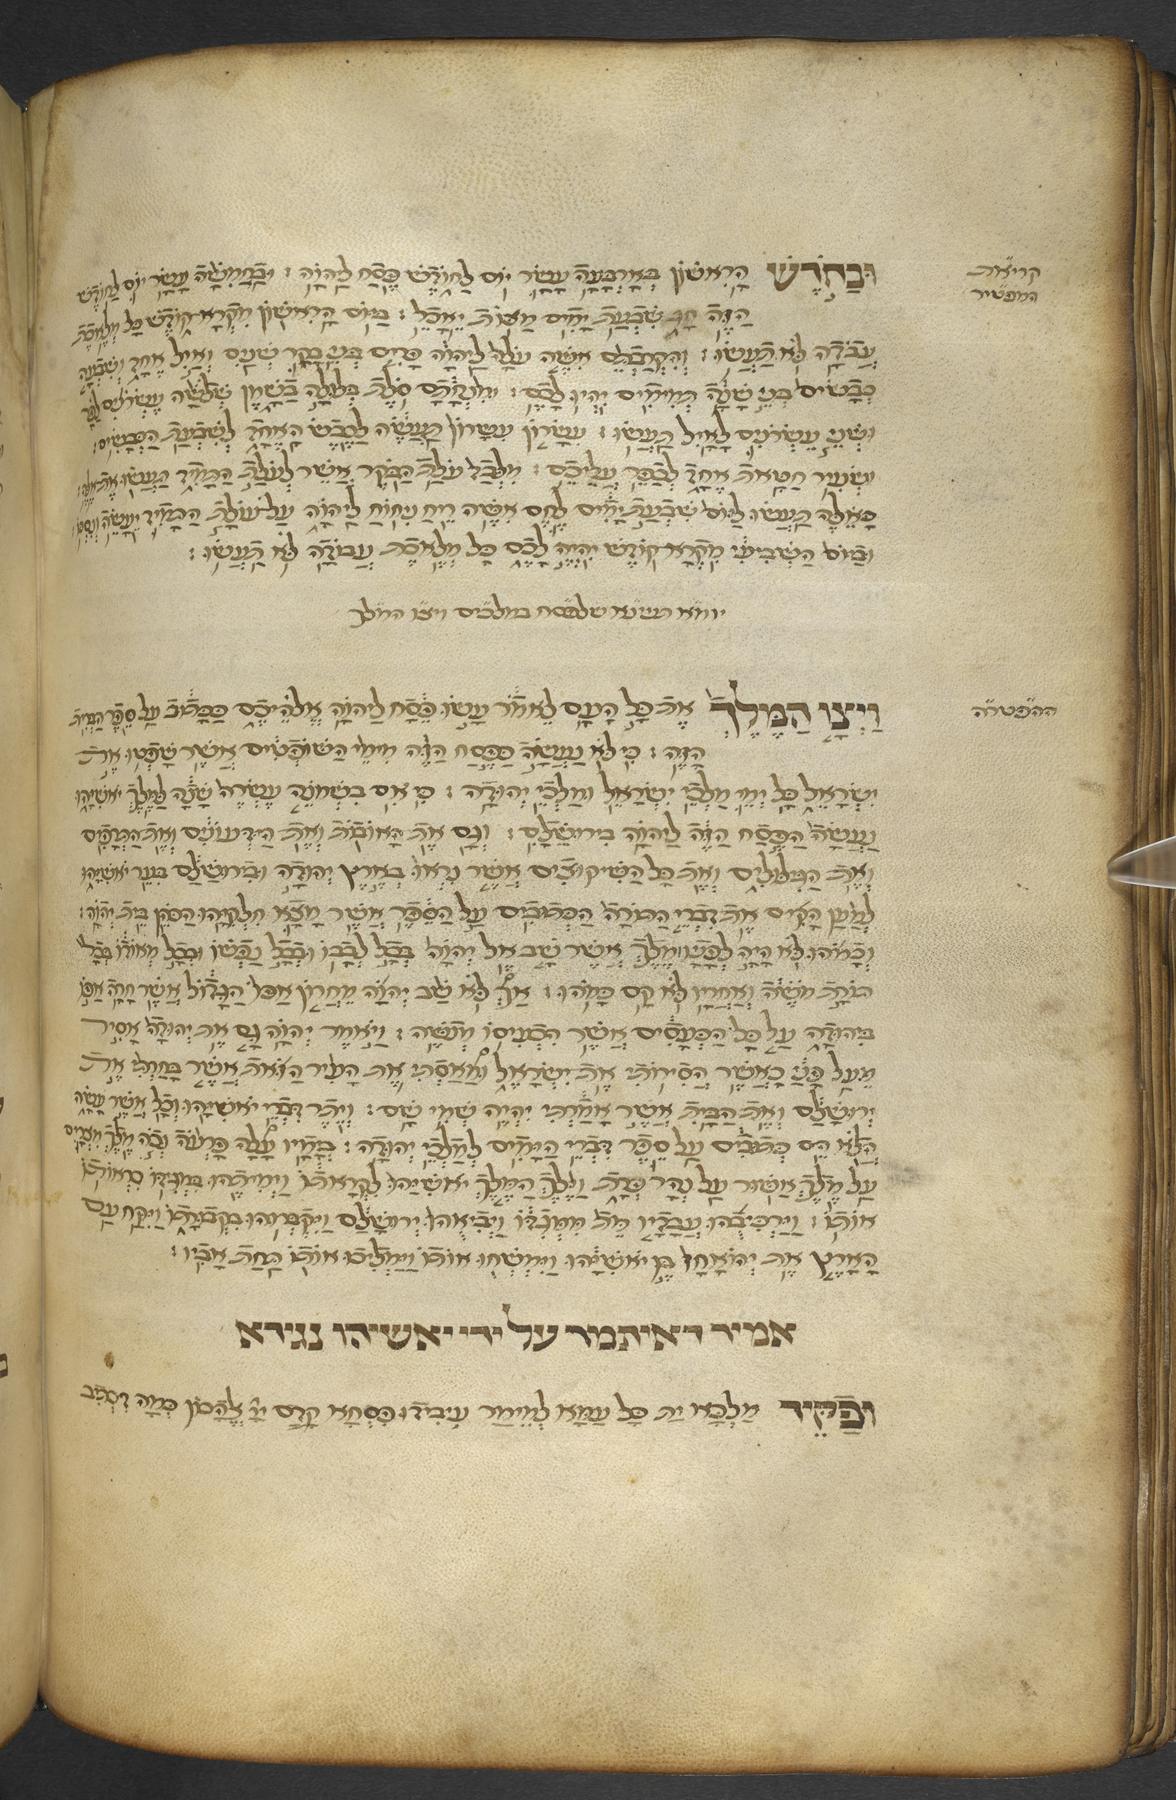 קריאת
המפטיר
וּבַחֹדֶשׁ הָרִאשׁוֹן בְּאַרְבָּעָה עָשָׂר יוֹם לַחוֹדֶשׁ פֶּסַח לַיהוָה : וּבַחֲמִשָּׁה עָשָׂר יוֹם לַחוֹדֶשׁ
הַזֶּה חָג שִׁבְעַת יָמִים מַצוֹת יֵאָכֵל : בַּיוֹם הָרִאשׁוֹן מִקְרָא קוֹדֶשׁ כָּל מְלֶאכֶת
עֲבֹדָה לֹא תַעֲשׂוּ : וְהִקְרַבְתֶּם אִשֶּׁה עֹלָה לַיהוָה פָּרִים בְּנֵי בָקָר שְׁנַיִם וְאַיִל אֶחָד וְשִׁבְעָה
כְבָשִׂים בְּנֵי שָׁנָה תְּמִימִים יִהְיוּ לָכֶם : וּמִנְחָתָם סֹלֶת בְּלוּלָה בַשֶּׁמֶן שְׁלֹשָׁה עֶשְׂרֹנִים לַפָּר
וּשְׁנֵי עֶשְׂרֹנִים לָאַיִל תַּעֲשׂוּ : עִשָּׂרוֹן עִשָּׂרוֹן תַּעֲשֶׂה לַכֶּבֶשׂ הָאֶחָד לְשִׁבְעַת הַכְּבָשִׂים :
וּשְׂעִיר חַטָּאת אֶחָד לְכַפֵּר עֲלֵיכֶם : מִלְּבַד עֹלַת הַבֹּקֶר אֲשֶׁר לְעֹלַת הַתָּמִיד תַּעֲשׂוּ אֶת אֵלֶּה :
כָּאֵלֶּה תַּעֲשׂוּ לַיּוֹם שִׁבְעַת יָמִים לֶחֶם אִשֶּׁה רֵיחַ נִיחוֹחַ לַיהוָה עַל עוֹלַת הַתָּמִיד יֵעָשֶׂה וְנִסְכּוֹ :
וּבַיּוֹם הַשְּׁבִיעִי מִקְרָא קוֹדֶשׁ יִהְיֶה לָכֶם כָּל מְלֶאכֶת עֲבוֹדָה לֹא תַעֲשׂוּ :
יומא תנינא שלפסח במלכים ויצו המלך
ההפטרה
וַיְצַו הַמֶּלֶךְ אֶת כָּל הָעָם לֵאמֹר עֲשׂוּ פֶסַח לַיהוָה אֱלֹהֵיכֶם כַּכָּתוּב עַל סֵפֶר הַבְּרִית
הַזֶּה : כִּי לֹא נַעֲשָׂה כַּפֶּסַח הַזֶּה מִימֵי הַשּׁוֹפְטִים אֲשֶׁר שָׁפְטוּ אֶת
יִשְׂרָאֵל כָּל יְמֵי מַלְכֵי יִשְׂרָאֵל וּמַלְכֵי יְהוּדָה : כִּי אִם בִּשְׁמֹנֶה עֶשְׂרֵה שָׁנָה לַמֶּלֶךְ יֹאשִׁיָּהוּ
נַעֲשָׂה הַפֶּסַח הַזֶּה לַיהוָה בִּירוּשָׁלָםִ : וְגַם אֶת הָאוֹבוֹת וְאֶת הַיִּדְעוֹנִים וְאֶת הַתְּרָפִים
וְאֶת הַגִּלּוּלִים וְאֵת כָּל הַשִּׁיקוּצִים אֲשֶׁר נִרְאוּ בְּאֶרֶץ יְהוּדָה וּבִירוּשָׁלַםִ בִּעֵר יֹאשִׁיָּהוּ
לְמַעַן הָקִים אֶת דִּבְרֵי הַתּוֹרָה הַכְּתוּבִים עַל הַסֵּפֶר אֲשֶׁר מָצָא חִלְקִיָּהוּ הַכֹּהֵן בֵּית יְהוָה :
וְכָמֹהוּ לֹא הָיָה לְפָנָיו מֶלֶךְ אֲשֶׁר שָׁב אֶל יְהוָה בְּכָל לְבָבוֹ וּבְכָל נַפְשׁוֹ וּבְכָל מְאוֹדוֹ כְּכֹל
תּוֹרַת מֹשֶׁה וְאַחֲרָיו לֹא קָם כָּמֹהוּ : אַךְ לֹא שָׁב יְהוָה מֵחֲרוֹן אַפּוֹ הַגָּדוֹל אֲשֶׁר חָרָה אַפּוֹ
בִּיהוּדָה עַל כָּל הַכְּעָסִים אֲשֶׁר הִכְעִיסוֹ מְנַשֶּׁה : וַיֹּאמֶר יְהוָה גַּם אֶת יְהוּדָה אָסִיר
מֵעַל פָּנַי כַּאֲשֶׁר הֲסִירוֹתִי אֶת יִשְׂרָאֵל וּמָאַסְתִּי אֶת הָעִיר הַזֹּאת אֲשֶׁר בָּחַרְתִּי אֶת
יְרוּשָׁלַםִ וְאֶת הַבַּיִת אֲשֶׁר אָמַרְתִּי יִהְיֶה שְׁמִי שָׁם : וְיֶתֶר דִּבְרֵי יֹאשִׁיָּהוּ וְכָל אֲשֶׁר עָשָׂה
הֲלֹא הֵם כְּתוּבִים עַל סֵפֶר דִּבְרֵי הַיָּמִים לְמַלְכֵי יְהוּדָה : בְּיָמָיו עָלָה פַּרְעֹה נְכֹה מֶלֶךְ מִצְרַיִם
עַל מֶלֶךְ אַשּׁוּר עַל נְהַר פְּרָת וַיֵּלֶךְ הַמֶּלֶךְ יֹאשִׁיָּהוּ לִקְרָאתוֹ וַיְמִיתֵהוּ בִּמְגִדּוֹ כִּרְאוֹתוֹ
אוֹתוֹ : וַיַּרְכִּיבֻהוּ עֲבָדָיו מֵת מִמְּגִדּוֹ וַיְבִיאֻהוּ יְרוּשָׁלַםִ וַיִּקְבְּרוּהוּ בִּקְבֻרָתוֹ וַיִּקַּח עַם
הָאָרֶץ אֶת יְהוֹאָחָז בֶּן יֹאשִׁיָּהוּ וַיִּמְשְׁחוּ אוֹתוֹ וַיַּמְלִיכוּ אוֹתוֹ תַּחַת אָבִיו :
אמיר דאיתמר על ידי יאשיהו נגידא
וּפַקֵּיד מַלְכָּא יַת כָּל עַמָּא לְמֵימַר עִיבִידוּ פִּסְחָא קֳדָם יְיָ אֱלָהֲכוֹן כְּמָה דִּכְתִיב